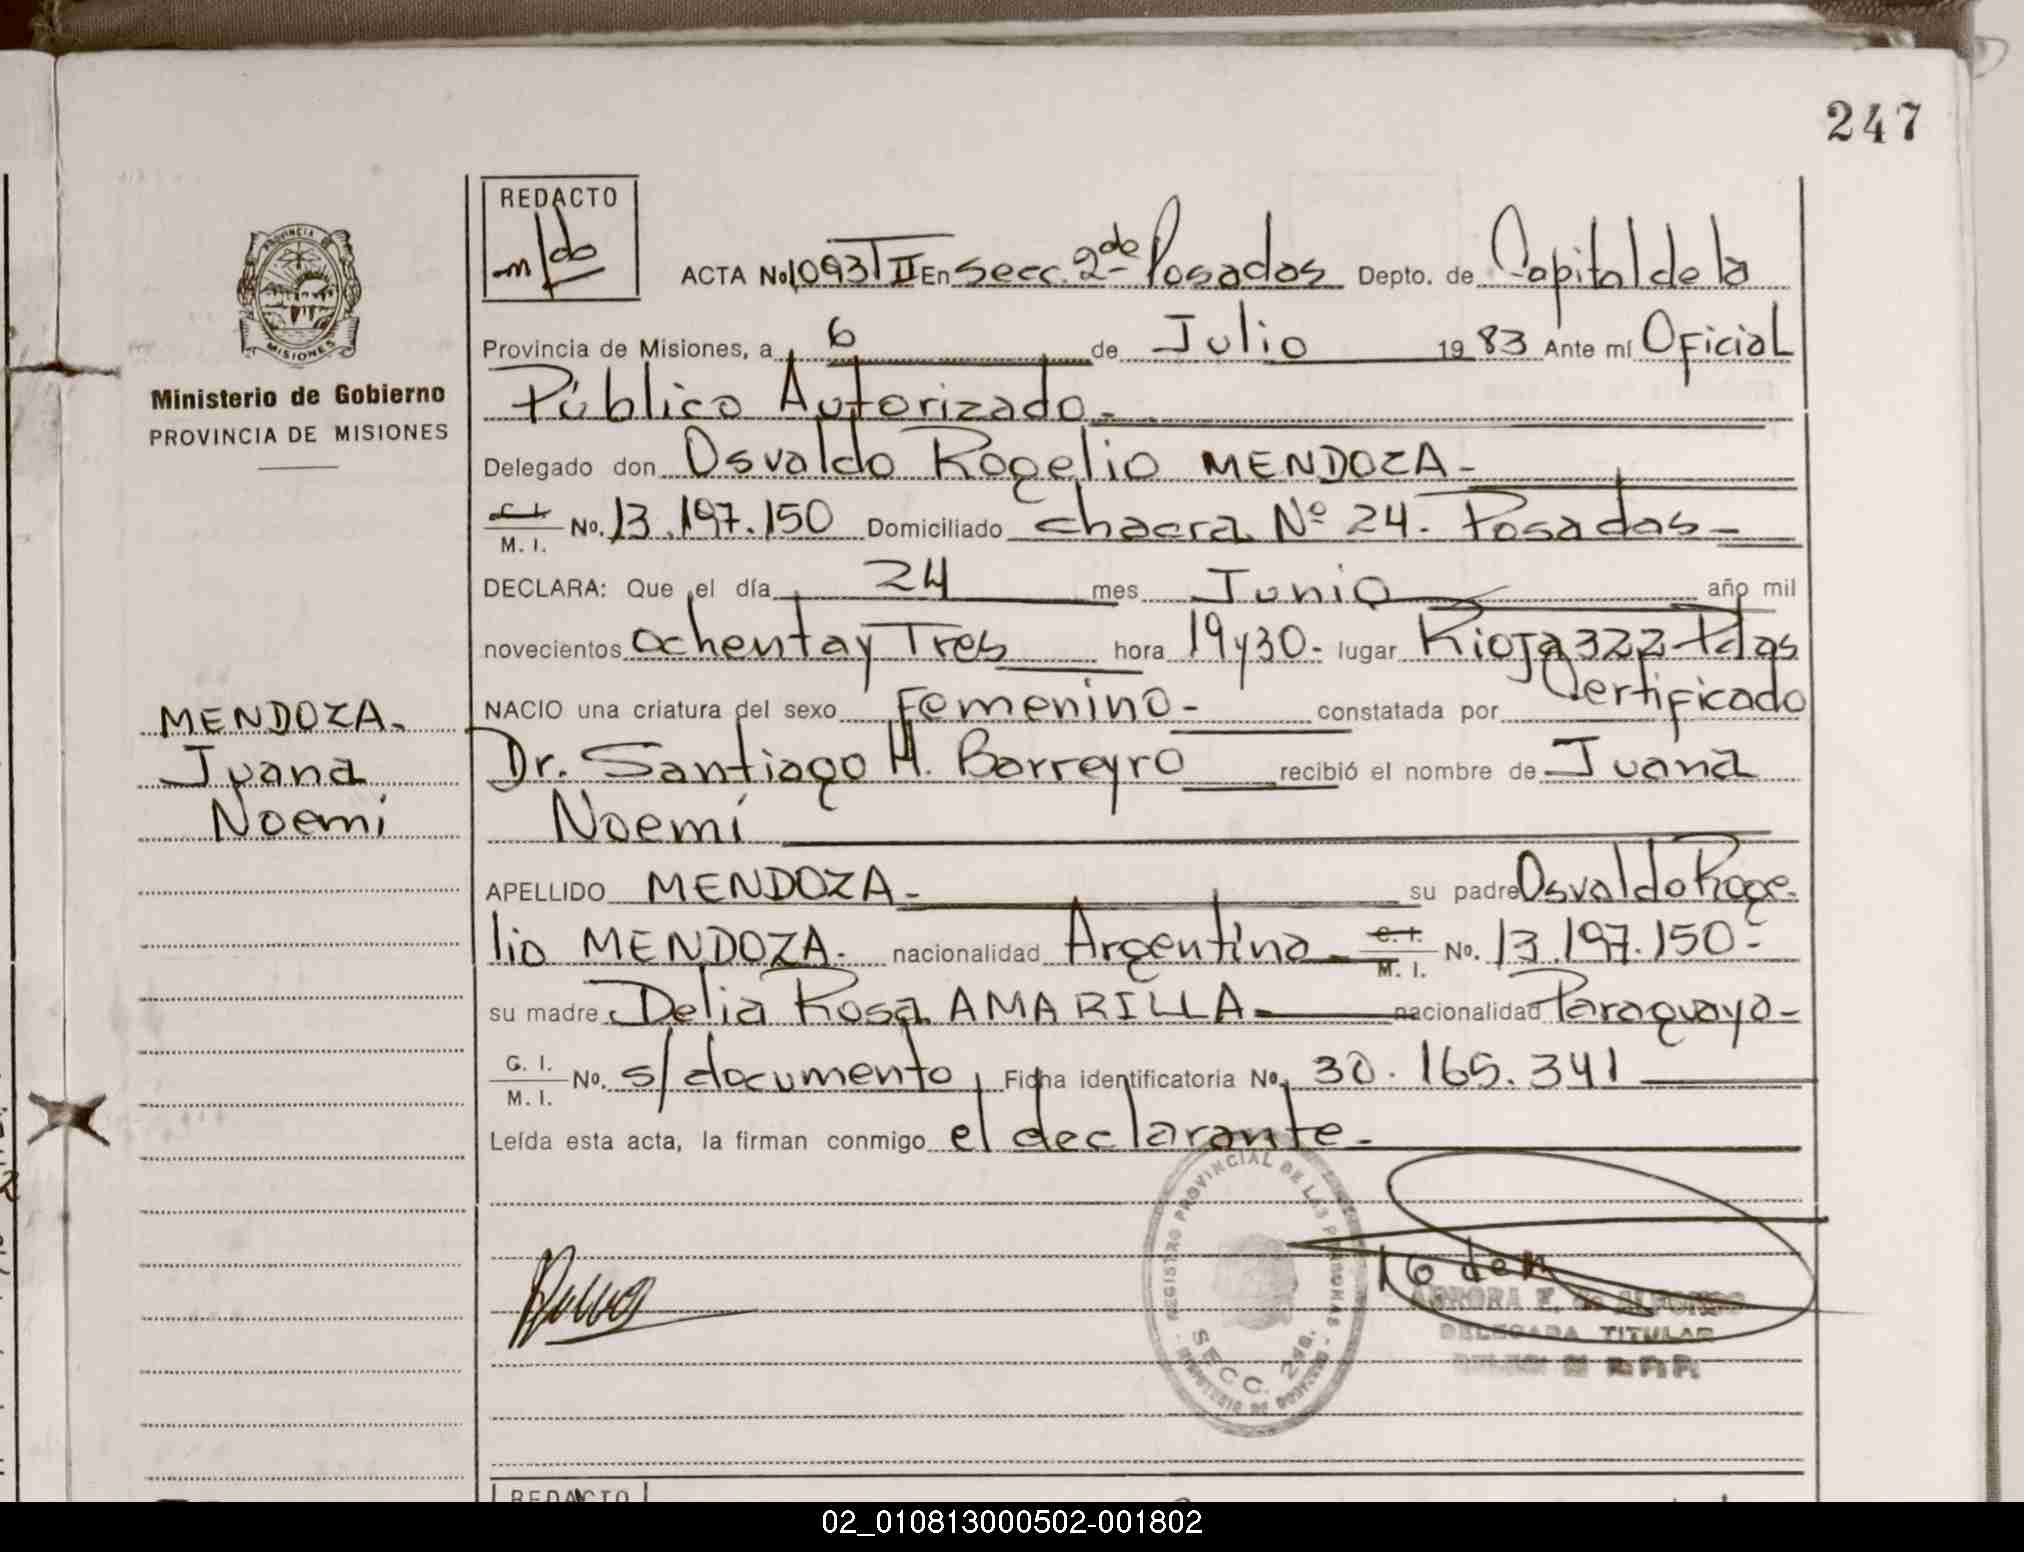 247
REDACTO
ACTA No 1093 T II En Secc. 2da de Posadas Depto. de Capital de la
Provincia de Misiones, a 6 de Julio 1983 Ante mí Oficial
Público Autorizado.-
Delegado don Osvaldo Rogelio MENDOZA-
C. I.
M. I. No. 13.197.150 Domiciliado chacra Nº 24. Posadas-
DECLARA: Que el día 24 mes Junio año mil
novecientos ochenta y Tres hora 19 y 30- lugar Rioja 322-Pdas
NACIO una criatura del sexo Femenino- constatada por Certificado
Dr. Santiago H. Barreyro recibió el nombre de Juana
Noemí
APELLIDO MENDOZA- su padre Osvaldo Roge-
lio MENDOZA- nacionalidad Argentino- C. I. / M. I. No. 13.197.150-
su madre Delia Rosa AMARILLA nacionalidad Paraguaya-
C. I.
M. I. No. s/documento, Ficha identificatoria No. 30.165.341
Leída esta acta, la firman conmigo el declarante-
PROVINCIA DE
MISIONES
Ministerio de Gobierno
PROVINCIA DE MISIONES
MENDOZA-
Juana
Noemi
REGISTRO PROVINCIAL DE LAS PERSONAS
SECC. 2da.
MINISTERIO DE GOBIERNO
DELEGADA TITULAR
REDACTO
02_010813000502-001802